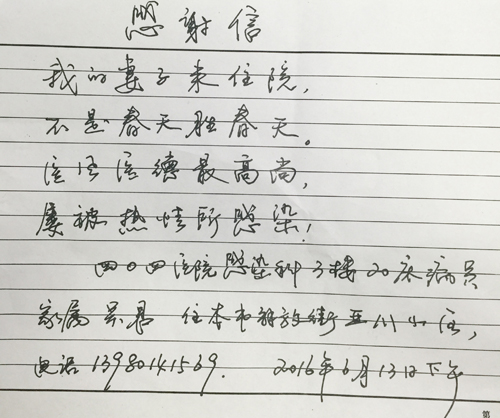 感谢信
我的妻子来住院,
不是春天胜春天。
医风医德最高尚,
屡被热情所感染!
四0四医院感染科3楼20床病员
家属 住本市解放街亚川小区,
电话13980141569. 2016年6月13日下午